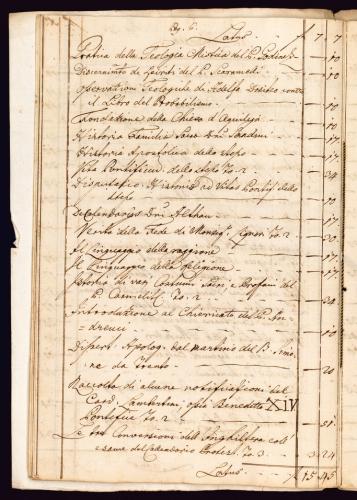 Latus f 7. 7
Pratica della Teologia Mistica del P. Godin — 10
Discernimento de Spiriti del P. Scaramelli — 10
Osservazioni Teologiche de Adelfo contro
il Libro del Probabilismo — 10
Fondazione della Chiesa d'Aquileja — 10
Historia Familiæ Sacræ — 17
Historia Apostolica dello stesso — 17
Vitæ Pontificum dello stesso To. 2 — 34
Disputatio Historica ad Vitas Pontif. dello
stesso — 10
De Calendariis — 17
Verità della Fede di Monsig. To. 2 — 30
Il Linguaggio della raggione — 17
Il Linguaggio della Religione — 17
Istoria di varj Costumi Sacri, e Profani del
P. Carmeli To. 2 — 30
Introduzione al Chiericato del
dreucci — 10
Dissert. Apolog. sul martirio del B. Simo-
ne da Trento — 20
Raccolta di alcune notificazioni del
Card. Lambertini, ossia Benedetto XIV
Pontefice To. 2 — 51
Le tre Conversioni dell'Inghilterra coll'
esame del Calendario To. 3 — 3. 24
Latus f 15. 45